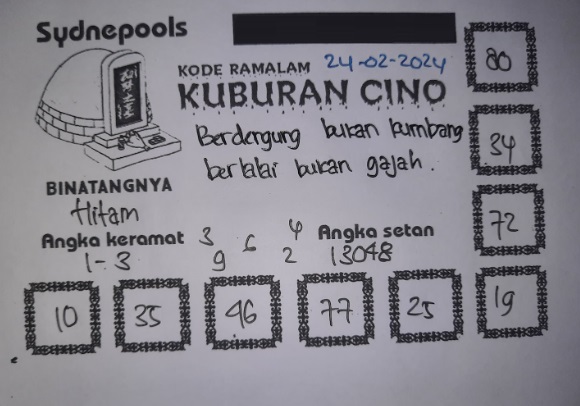 Sydnepools
KODE RAMALAM 24-02-2024
KUBURAN CINO
Berdengung bukan kumbang
berlalai bukan gajah.
BINATANGNYA
Hitam
Angka keramat
1-3
3 6 4
9 2
Angka setan
13048
80
34
72
19
10 35 46 77 25